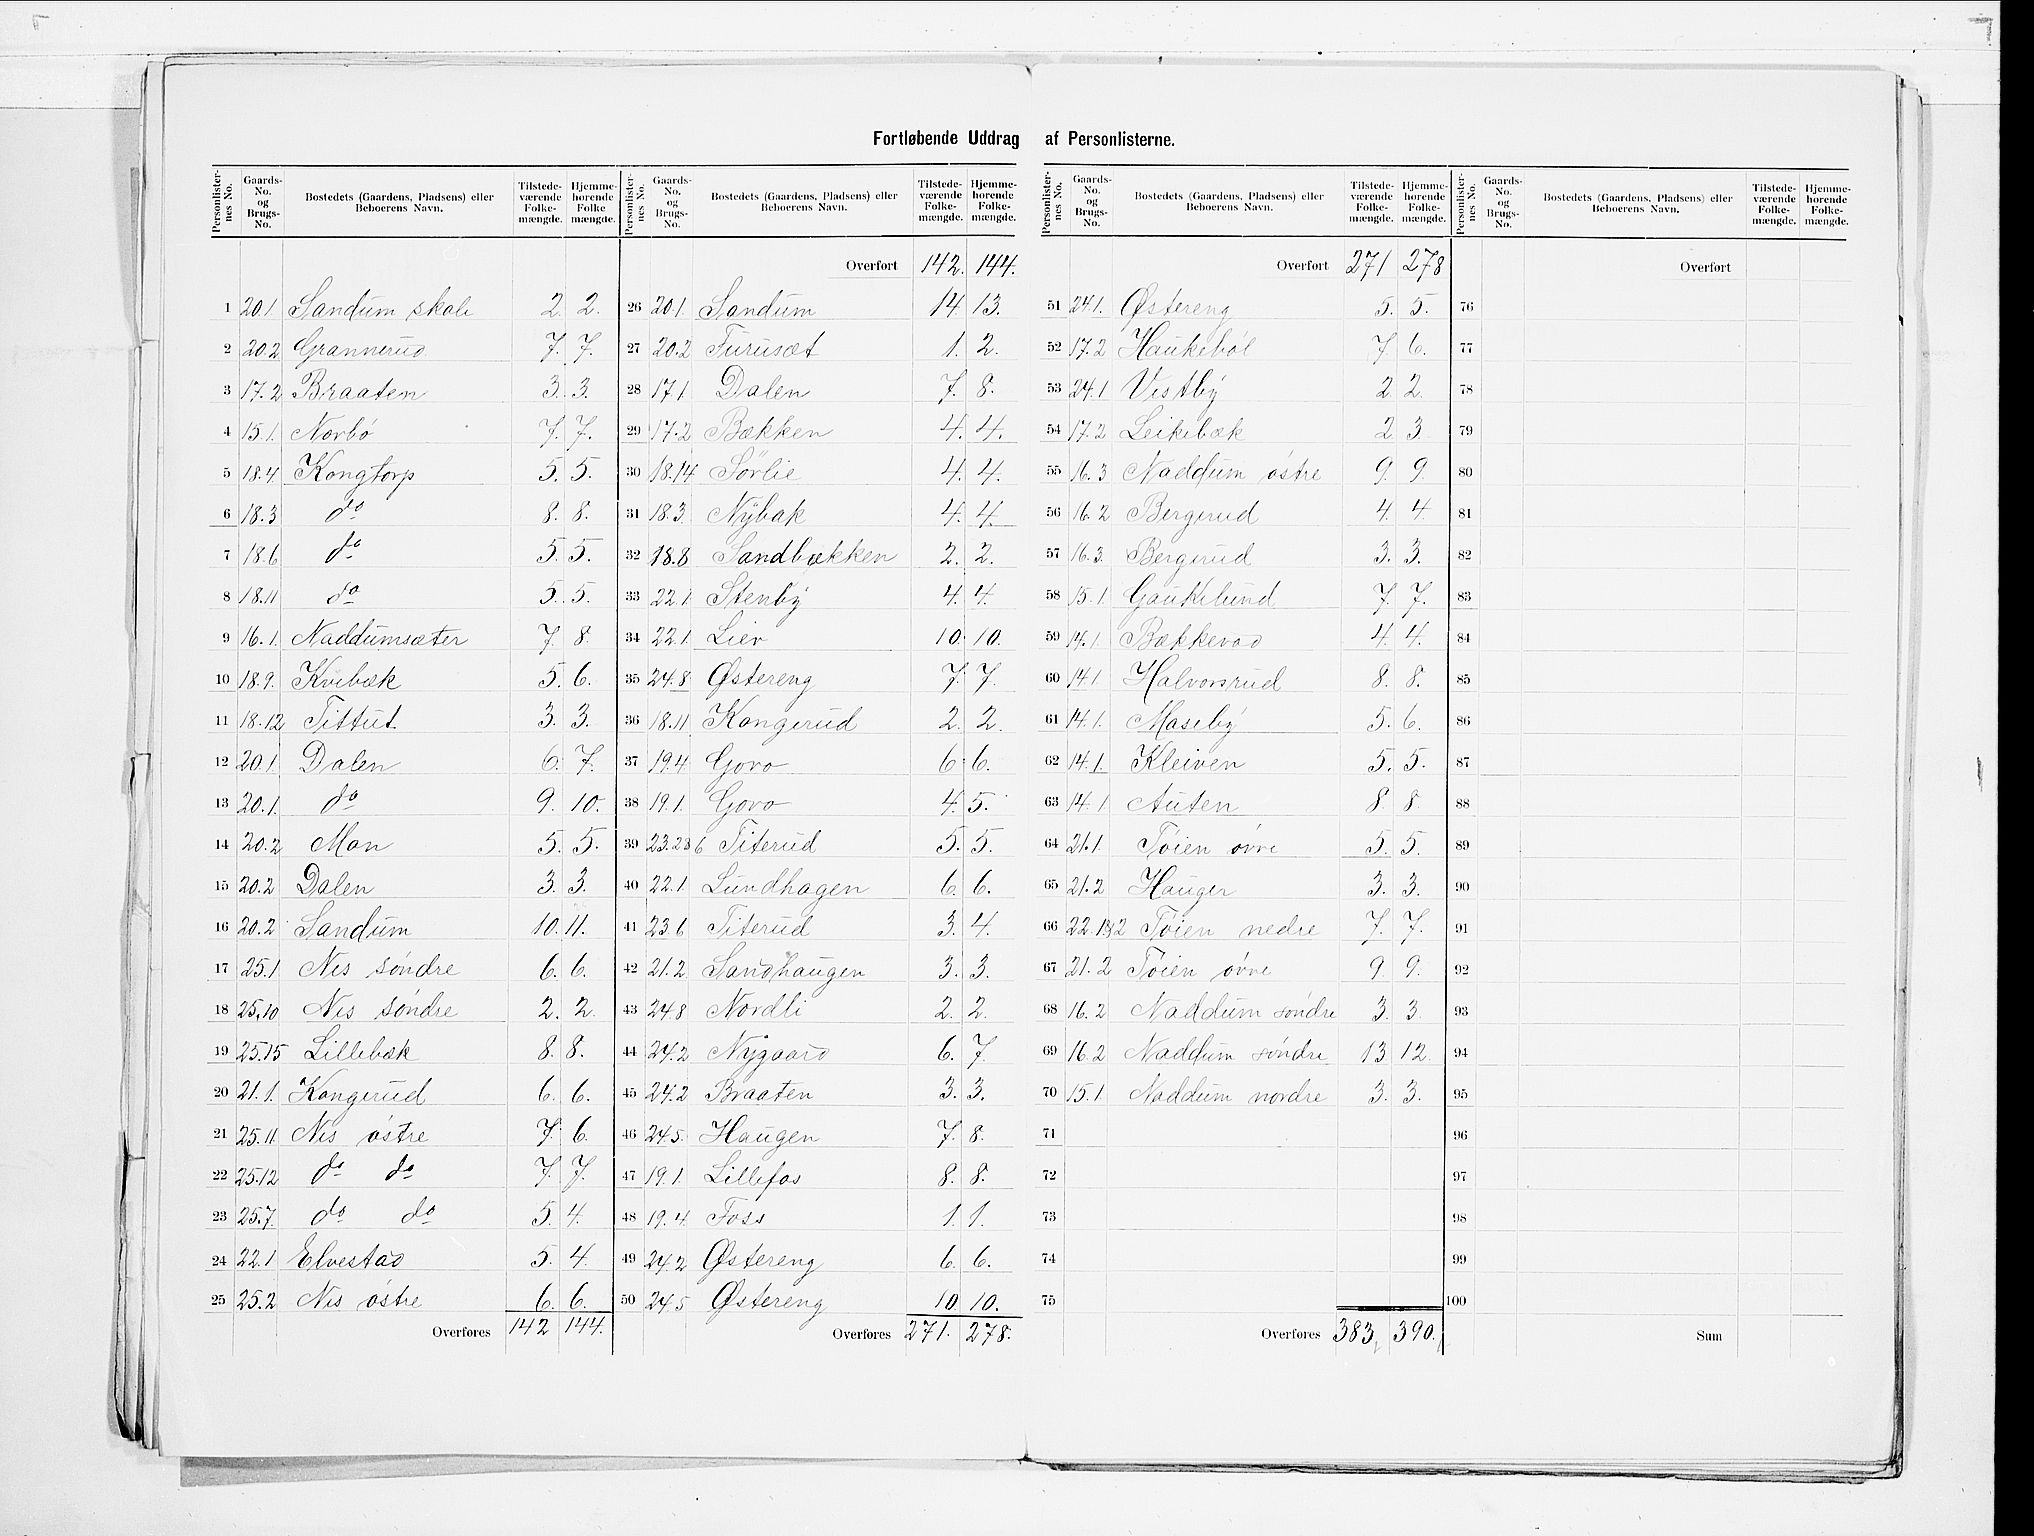 Fortløbende Uddrag af Personlisterne.
Personlister-nes No. | Gaards-No. og Brugs-No. | Bostedets (Gaardens, Pladsens) eller Beboerens Navn. | Tilstede-værende Folke-mængde. | Hjemme-hørende Folke mængde.
1 20.1 Sandum skole 2. 2.
2 20.2 Grannerud 7. 7.
3 17.2 Braaten 3. 3.
4 15.1. Norbø 7. 7.
5 18.4 Kongtorp 5. 5.
6 18.3 do 8. 8.
7 18.6 do 5. 5.
8 18.11 do 5. 5.
9 16.1. Naddumsæter 7. 8.
10 18.9. Kvibæk 5. 6.
11 18.12 Tittut 3. 3.
12 20.1. Dalen 6. 7.
13 20.1. do 9. 10.
14 20.2 Mon 5. 5.
15 20.2 Dalen 3. 3.
16 20.2 Sandum 10. 11.
17 25.1 Nes söndre 6. 6.
18 25.10 Nes söndre 2. 2.
19 25.15 Lillebæk 8. 8.
20 21.1. Kongerud 6. 6.
21 25.11. Nes östre 7. 6.
22 25.12 do do 7. 7.
23 25.7. do do 5. 4.
24 22.1 Elvestad 5. 4.
25 25.2 Nes östre 6. 6.
Overføres 142 144.
Personlister-nes No. | Gaards-No. og Brugs-No. | Bostedets (Gaardens, Pladsens) eller Beboerens Navn. | Tilstede-værende Folke-mængde. | Hjemme-hørende Folke-mængde.
Overført 142. 144.
26 20.1. Sandum 14. 13.
27 20.2 Furusæt 1. 2.
28 17.1 Dalen 7. 8.
29 17.2 Bækken 4. 4.
30 18.14 Sörlie 4. 4.
31 18.3. Nÿbak 4. 4.
32 18.8 Sandbækken 2. 2.
33 22.1. Stenbÿ 4. 4.
34 22.1. Lier 10. 10.
35 24.8 Østereng 7. 7.
36 18.11 Kongerud 2. 2.
37 19.4 Govo 6. 6.
38 19.1. Govo 4. 5.
39 23.2 & 6 Titerud 5. 5.
40 22.1. Lundhagen 6. 6.
41 23.6 Titerud 3. 4.
42 21.2 Sandhaugen 3. 3.
43 24.8 Nordli 2. 2.
44 24.2 Nÿgaard 6. 7.
45 24.2 Braaten 3. 3.
46 24.5. Haugen 7. 8.
47 19.1. Lillefos 8. 8.
48 19.4. Foss 1. 1.
49 24.2 Østereng 6. 6.
50 24.5 Østereng 10 10.
Overføres 271. 278.
Personlister-nes No. | Gaards-No. og Brugs-No. | Bostedets (Gaardens, Pladsens) eller Beboerens Navn. | Tilstede-værende Folke-mængde. | Hjemme-hørende Folke-mængde.
Overført 271 278
51 24.1. Østereng 5. 5.
52 17.2 Haukebøl 7. 6.
53 24.1 Vestbÿ 2 2.
54 17.2 Leikebæk 2 3
55 16.3 Naddum östre 9. 9.
56 16.2 Bergerud 4. 4
57 16.3. Bergerud 3. 3.
58 15.1. Gaukelund 7. 7.
59 14.1. Bækkevad 4. 4.
60 14.1 Halvorsrud 8. 8.
61 14.1. Masebÿ 5. 6.
62 14.1. Kleiven 5. 5.
63 14.1 Auten 8. 8.
64 21.1. Töien övre 5. 5.
65 21.2 Hauger 3. 3.
66 22.1&2 Töien nedre 7. 7.
67 21.2 Töien övre 9. 9.
68 16.2 Naddum söndre 3. 3.
69 16.2 Naddum söndre 13 12.
70 15.1 Naddum nordre 3. 3.
71
72
73
74
75
Overføres 383, 390.
Personlister-nes No. | Gaards-No. og Brugs-No. | Bostedets (Gaardens, Pladsens) eller Beboerens Navn. | Tilstede-værende Folke-mængde. | Hjemme-hørende Folke-mængde.
Overført
76
77
78
79
80
81
82
83
84
85
86
87
88
89
90
91
92
93
94
95
96
97
98
99
100
Sum